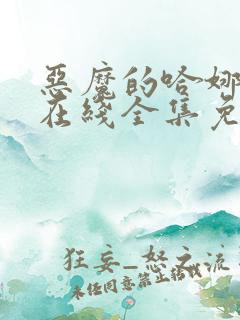 惡魔的哈娜
在綫全集免
狂妄_怒之流
未经同意禁止转载